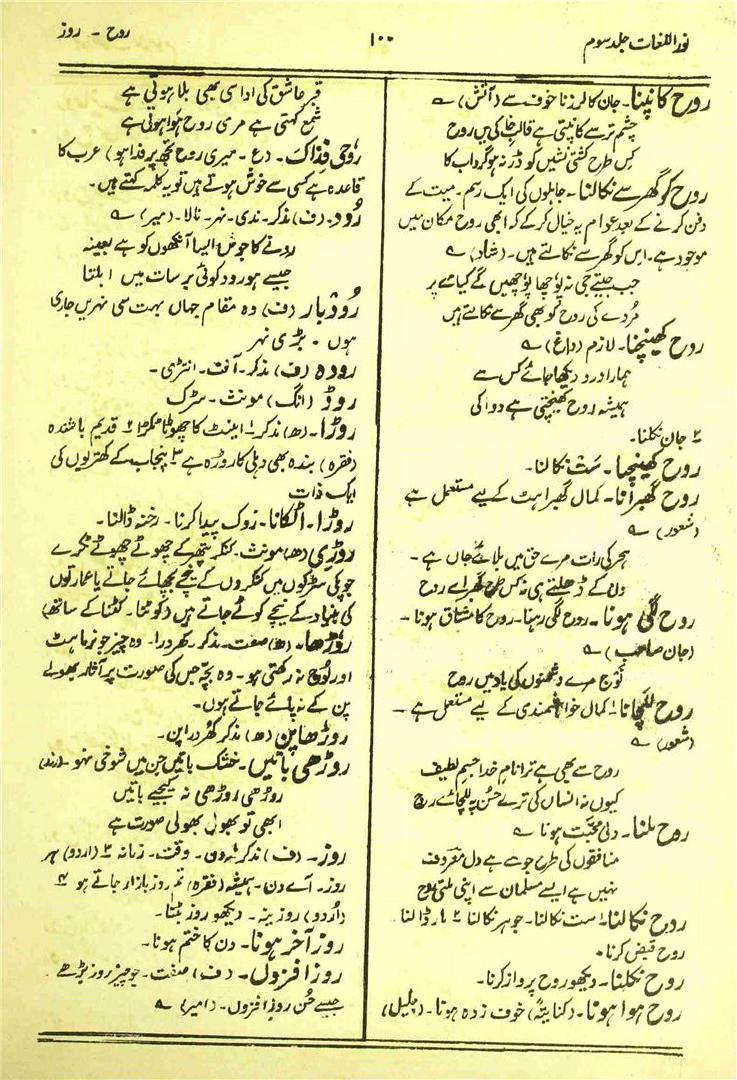 نور اللغات جلد سوم
۱۰۰
روح - روز
روح کانپنا۔ جان کا لرزنا خوف سے (آتش) ؎
چشم تر سے کانپتی ہے قالب خاکی میں روح
کس طرح کشتی نشیں کو ڈر نہ ہو گرداب کا
روح کو گھر سے نکالنا۔ جاہلوں کی ایک رسم۔ میت کے
دفن کرنے کے بعد عوام یہ خیال کرکے کہ ابھی روح مکان میں
موجود ہے۔ اس کو گھر سے نکالتے ہیں۔ (شاد) ؎
جب جیتے جی نہ پوچھا پوچھیں گے کیا مرے پر
مردے کی روح کو بھی گھر سے نکالتے ہیں
روح کھینچنا۔ لازم (داغ) ؎
ہمارا درد دیکھا جائے کس سے
ہمیشہ روح کھنچتی ہے دوا کی
۲ جان نکلنا۔
روح کھینچنا۔ ست نکالنا۔
روح گھبرانا۔ کمال گھبراہٹ کے لیے مستعمل ہے
(شعور) ؎
ہجر کی رات مرے حق میں بلائے جاں ہے۔
دن کے ڈھلتے ہی نہ کس طرح گھبراے روح
روح لگی ہونا۔ روح لگی رہنا۔ روح کا مشتاق ہونا۔
(جان صاحب) ؎
نوج مرے دشمنوں کی یاد میں روح
روح للچانا۔ کمال خواہشمندی کے لیے مستعمل ہے۔
(شعور) ؎
روح سے بھی ہے ترا نام خدا جسم لطیف
کیوں نہ انساں کی ترے حسن پہ للچائے روح
روح ملنا۔ دلی محبت ہونا ؎
منافقوں کی طرح جو ہے دل معروف
نہیں ہے ایسے مسلمان سے اپنی ملتی روح
روح نکالنا۔ ۱ ست نکالنا۔ جوہر نکالنا ۲ مار ڈالنا
روح قبض کرنا۔
روح نکلنا۔ دیکھو روح پرواز کرنا۔
روح ہوا ہونا۔ (کنایتہً) خوف زدہ ہونا۔ (جلیل)
قبر عاشق کی اداسی بھی بلا ہوتی ہے
شمع کہتی ہے مری روح ہوا ہوتی ہے
روحی فداک۔ (ع۔ میری روح تجھ پر فدا ہو) عرب کا
قاعدہ ہے کسی سے خوش ہوتے ہیں تو یہ کلمہ کہتے ہیں۔
رود۔ (ف) مذکر۔ ندی۔ نہر۔ نالا۔ (میر) ؎
رونے کا جوش ایسا آنکھوں کو ہے بعینہ
جیسے ہو رود کوئی برسات میں ابلتا
رودبار (ف) وہ مقام جہاں بہت سی نہریں جاری
ہوں۔ بڑی نہر
رودہ (ف) مذکر۔ آنت۔ انتڑی۔
روڈ (انگ) مونث۔ سڑک
روڑا۔ (ھ) مذکر۔ ۱ اینٹ کا چھوٹا ٹکڑا ۲ قدیم باشندہ
(فقرہ) بندہ بھی دہلی کا روڑہ ہے ۳ پنجاب کے کھتریوں کی
ایک ذات
روڑا۔ اٹکانا۔ روک پیدا کرنا۔ رخنہ ڈالنا۔
روڑی (ھ) مونث۔ کنکر پتھر کے چھوٹے چھوٹے ٹکڑے
جو پکی سڑکوں میں کنکروں کے نیچے بچھائے جاتے یا عمارتوں
کی بنیاد کے نیچے کوٹے جاتے ہیں (کوٹنا۔ کٹنا کے ساتھ)
روڑھا۔ (ھ) صفت۔ مذکر۔ کھردرا۔ وہ چیز جو نرماہٹ
اور لوچ نہ رکھتی ہو۔ وہ بچہ جس کی صورت پر آثار بھولے
پن کے نہ پائے جاتے ہوں۔
روڑھا پن (ھ) مذکر کھردرا پن۔
روڑھی باتیں۔ خشک باتیں جن میں شوخی نہو۔ (رند)
روڑھی روڑھی نہ کیجیے باتیں
ابھی تو بھولی بھولی صورت ہے
روز۔ (ف) مذکر ۱ دن۔ وقت۔ زمانہ ۲ (اردو) ہر
روز۔ آے دن۔ ہمیشہ (فقرہ) تم روز بازار جاتے ہو ۳
(اردو) روزینہ۔ دیکھو روز بٹنا۔
روز آخر ہونا۔ دن کا ختم ہونا۔
روز افزوں۔ (ف) صفت۔ جو چیز روز بڑھے
جیسے حسن روز افزوں۔ (امیر) ؎